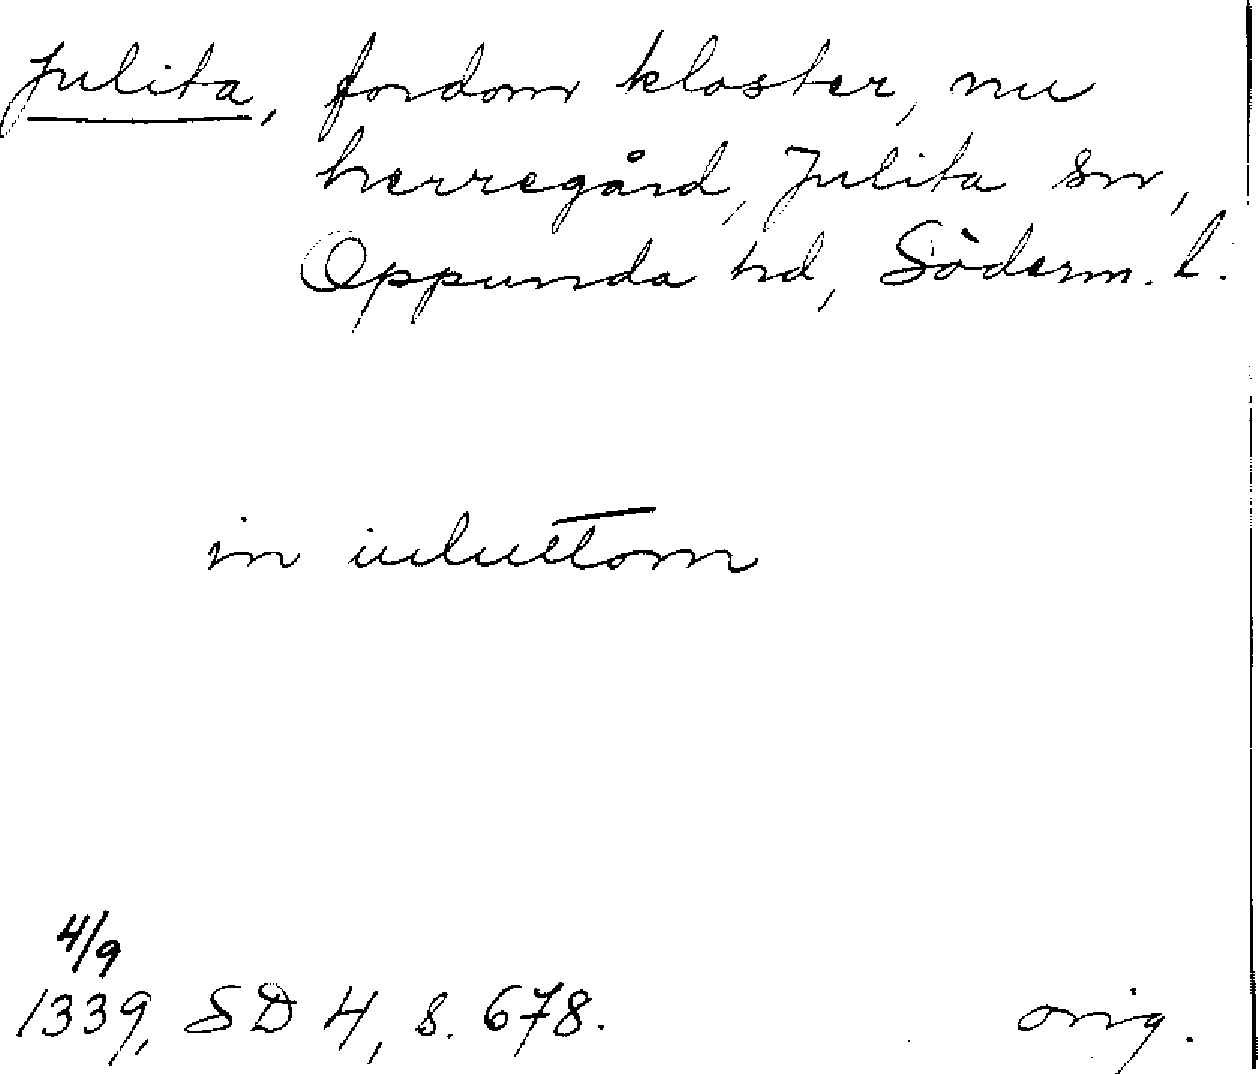 Julita, fordom kloster, nu
herregård, Julita sn,
Oppunda hd, Söderm. l.
in iuluttom
4/9
1339, SD 4, s. 678.
orig.